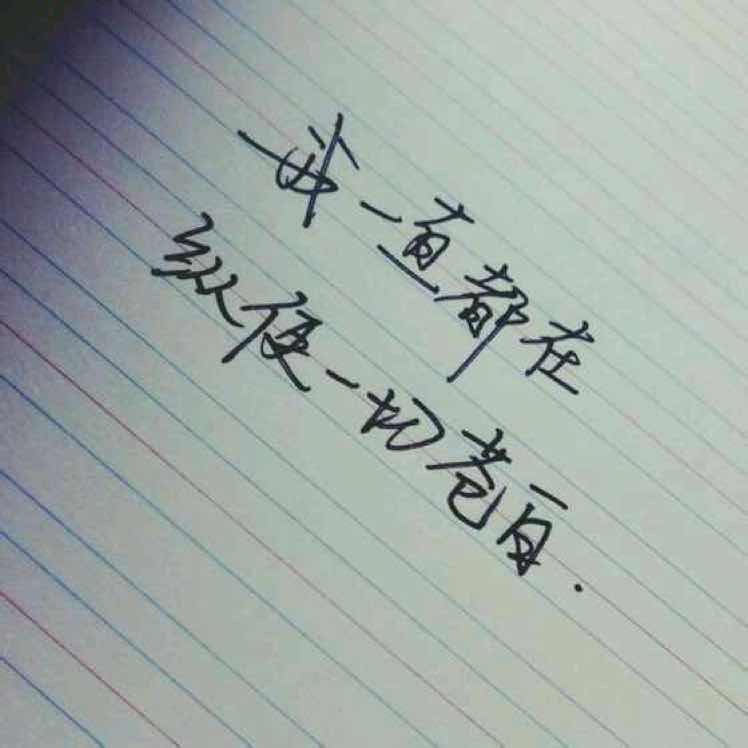 我一直都在
纵使一切苍白.